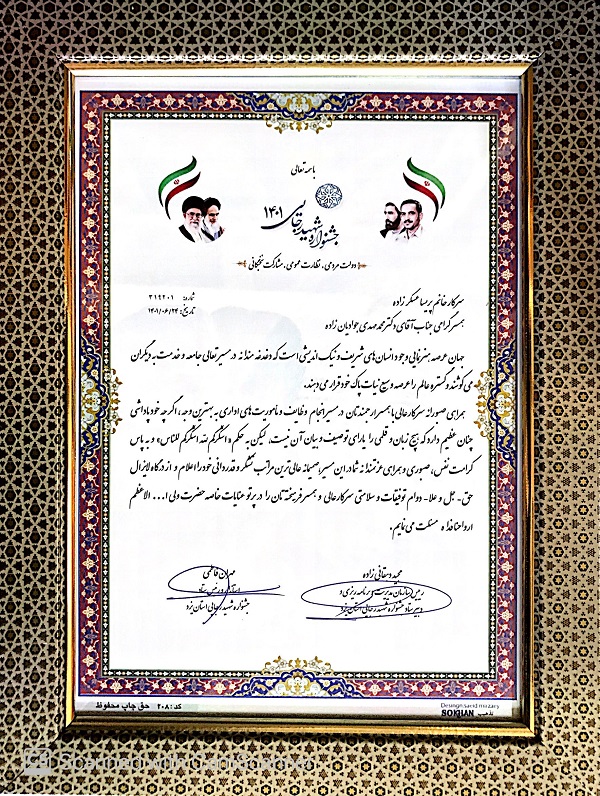 باسمه تعالی
جشنواره شهید رجایی ۱۴۰۱
دولت مردمی، نظارت عمومی، مشارکت نخبگانی
شماره: ۳۱۹۲۰۱
تاریخ: ۱۴۰۱/۰۶/۲۳
سرکار خانم پریسا عسکرزاده
همسر گرامی جناب آقای دکتر محمدمهدی جوادیان زاده
جهان عرصه هنرنمائی وجود انسان های شریف و نیک اندیشی است که دغدغه مندانه در مسیر تعالی جامعه و خدمت به دیگران
می کوشند و گستره عالم را عرصه وسیع نیات پاک خود قرار می دهند.
همراهی صبورانه سرکار عالی با همسر ارجمندتان در مسیر انجام وظایف و مأموریت های اداری به بهترین وجه، اگرچه خود پاداشی
چنان عظیم دارد که هیچ زبان و قلمی را یارای توصیف و بیان آن نیست، لیکن به حکم «اشکرکم لله اشکرکم للناس» و به پاس
کرامت نفس، صبوری و همراهی عزتمندانه شما در این مسیر، صمیمانه عالی ترین مراتب تشکر و قدردانی خود را اعلام و از درگاه لایزال
حق - جل و علا- دوام توفیقات و سلامتی سرکار عالی و همسر فرهیخته تان را در پرتو عنایات خاصه حضرت ولی ا... الاعظم
ارواحنا فداه مسئلت می نمایم.
مجید دهقانی زاده
رئیس سازمان مدیریت و برنامه ریزی و
دبیر ستاد جشنواره شهید رجایی استان یزد
مهران فاطمی
استاندار و رئیس ستاد
جشنواره شهید رجایی استان یزد
کد: ۲۰۸ حق چاپ محفوظ
Design: saeid mirzaey
SOKIJAN تذهیب
CS Scanned with CamScanner